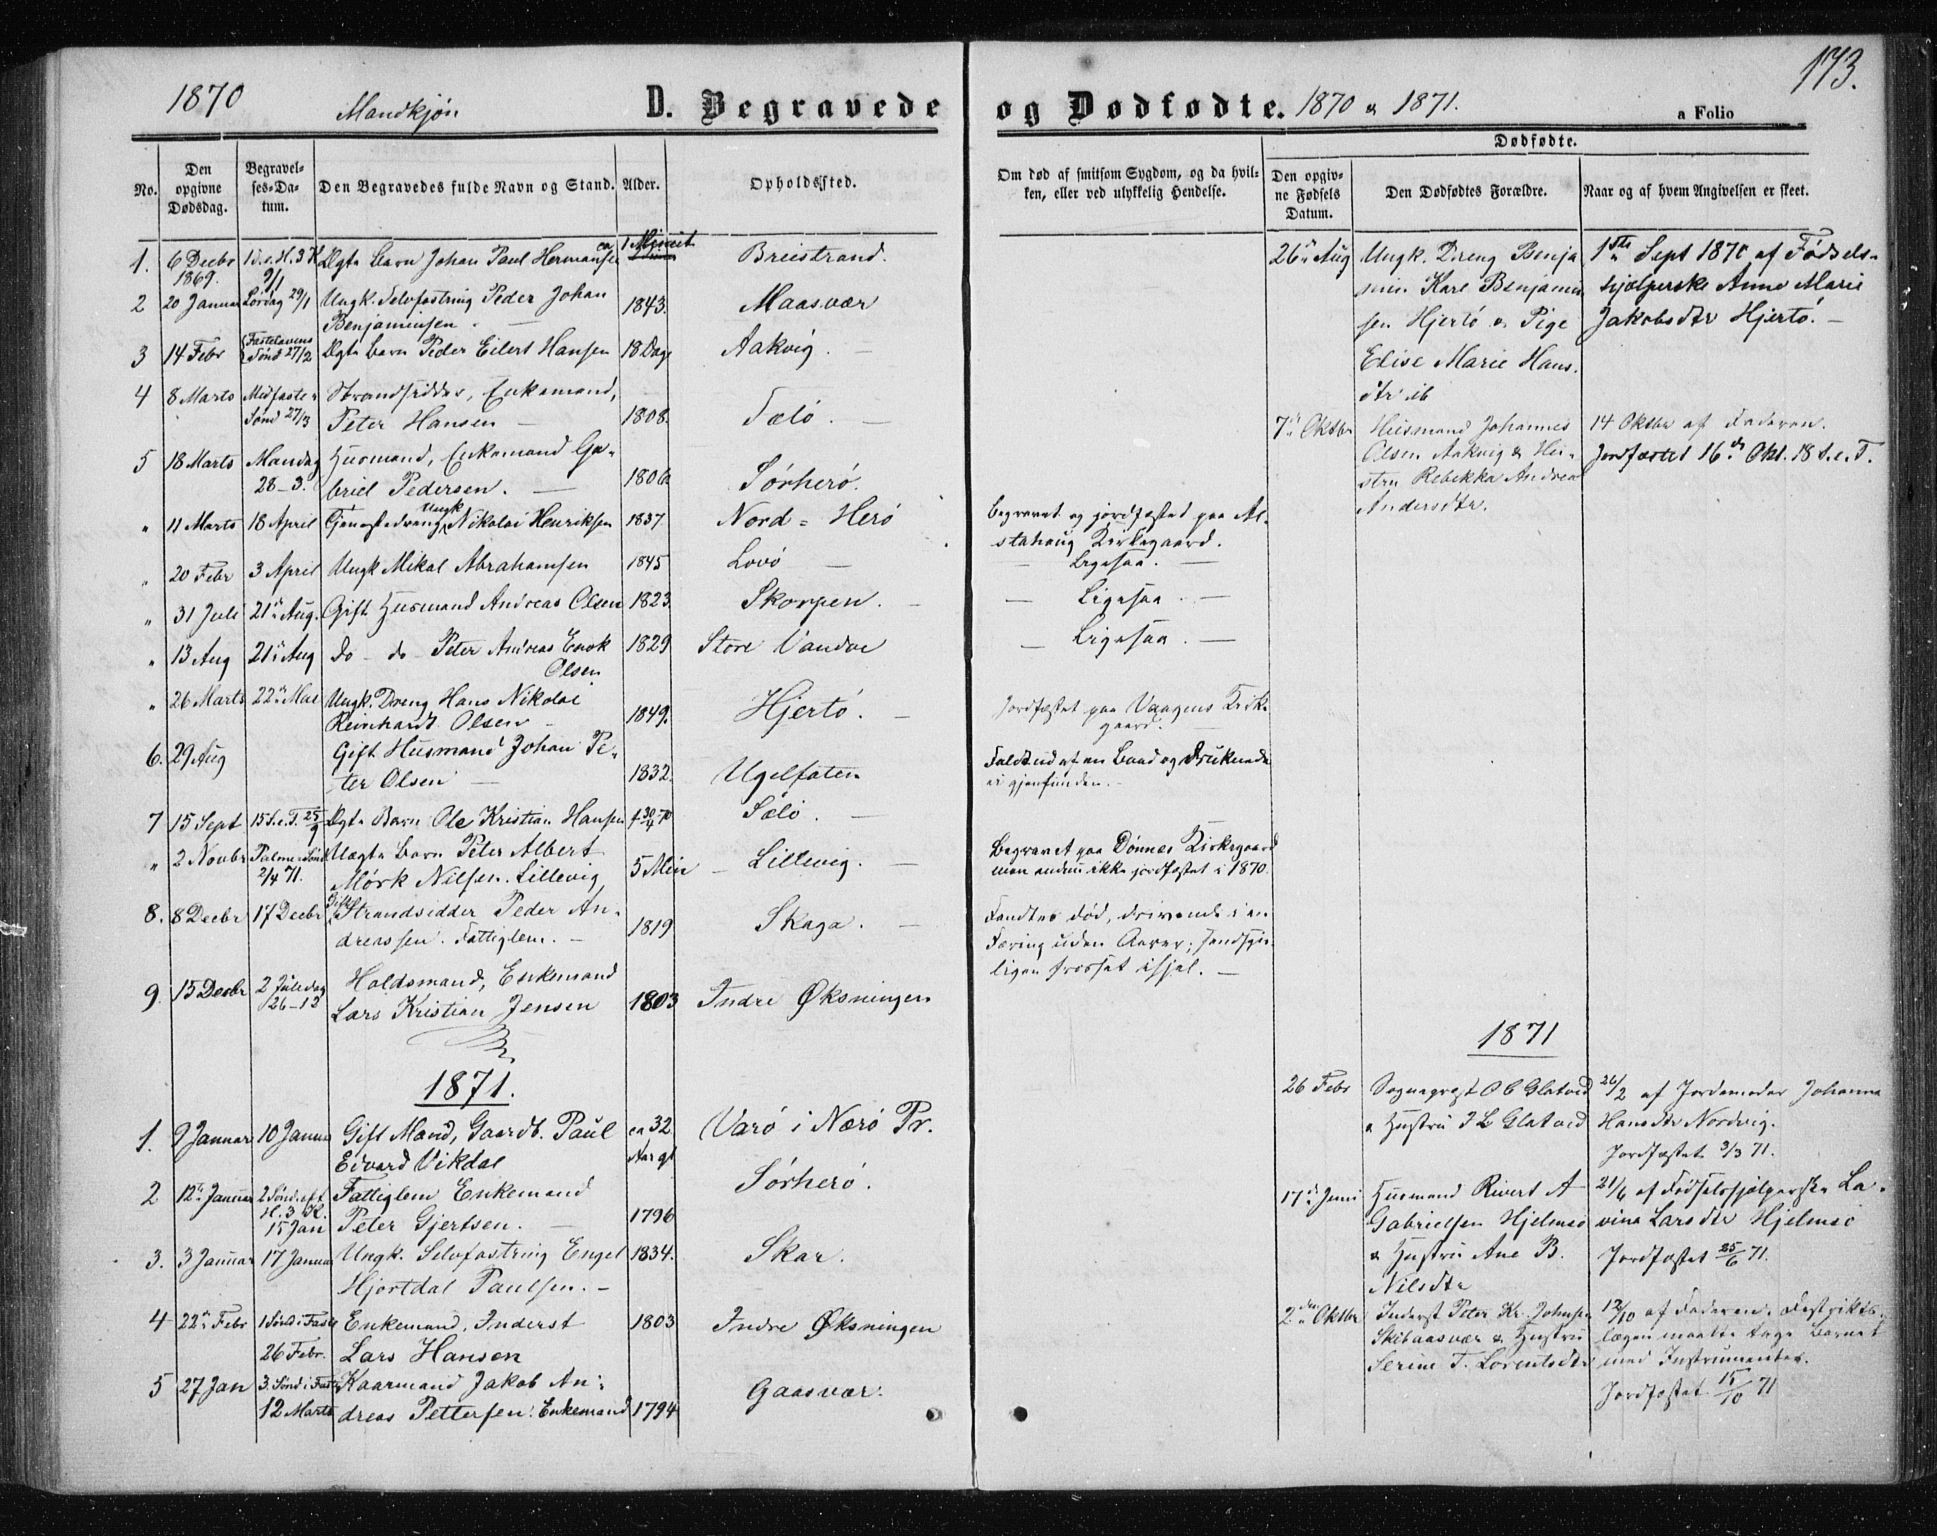 173.
1870 Mandkjøn D. Begravede og Dødfødte. 1870 & 1871. a Folio
No.
Den opgivne Dødsdag.
Begravelses-Datum.
Den Begravedes fulde Navn og Stand.
Alder.
Opholdssted.
Om død af smitsom Sygdom, og da hvilken, eller ved ulykkelig Hendelse.
Dødfødte.
Den opgivne Fødsels Datum.
Den Dødfødtes Forældre.
Naar og af hvem Angivelsen er skeet.
1. 6 Decbr 1869. 9/1 Ægte Barn Johan Paul Hermansen ca 1 Minut Breistrand.
2 20 Januar Lørdag 29/1 Ungk. Selvfostring Peder Johan
Benjaminsen. 1843. Maasvær
3 14 Febr Fastelavens Sønd 27/2 Ægte Barn Peder Eilert Hansen 18 Dage Aakvig.
4 8 Marts Midfaste Sønd 27/3 Strandsidder, Enkemand,
Peter Hansen 1808. Sælø.
5 18 Marts Mandag 28-3. Husmand, Enkemand Ga-
briel Pedersen. 1806 Sørherø.
" 11 Marts 18 April Tjenestedreng Ungk Nikolai Henriksen 1837 Nord-Herø Begravet og jordfæstet paa Al-
stahoug Kirkegaard.
" 20 Febr 3 April Ungk Mikal Abrahamsen 1845 Lovø Ligesaa.
" 31 Juli 21de Aug. Gift Husmand Andreas Olsen 1823. Skorpen. Ligesaa.
" 13 Aug 21de Aug do do Peter Andreas Enok
Olsen 1829 Store Vandve Ligesaa.
" 26 Marts 22de Mai Ungk. Dreng Hans Nikolai
Reinhardt Olsen 1849. Hjertø. Jordfæstet paa Vaagens Kirke-
gaard.
6. 29 Aug Gift Husmand Johan Pe-
ter Olsen 1832. Ugelfaten Faldt ud af en Baad og druknede
ei gjenfunden.
7 15 Sept 15 S.e.T. 25/9 Ægte Barn Ole Kristian Hansen f 30/4 70 Sælø.
" 2 Novbr Palme-Sønd 2/4 71. Uægte Barn Peter Albert
Mørk Nilsen. Lillevig 5 Min Lillevig. Begravet paa Dønnes Kirkegaard
men endnu ikke jordfæstet i 1870.
8. 8 Decbr 17 Decbr Gift Strandsidder Peder An-
dreassen. Fattiglem. 1819 Skaga. Fandtes død, drivende i en
Færing uden Aarer; sandsyn-
ligen frosset ihjel.
9. 15 Decbr 2 Juledag 26-12 Holdsmand, Enkemand
Lars Kristian Jensen 1803 Indre Øksningen
1871.
1. 9 Januar 10 Januar Gift Mand, Gaardb. Paul
Edvard Vikdal ca 32 Aar gl Varø i Nærø Pr.
2 12te Januar 2 Sønd. eft. H. 3 K. 15 Jan Fattiglem Enkemand
Peter Gjertsen. 1796 Sørherø.
3. 3 Januar 17 Januar Ungk. Selvfostring Engel
Hjortdal Paulsen. 1834. Skar.
4 22de Febr 1 Sønd i Faste 26 Febr. Enkemand, Inderst
Lars Hansen 1803 Indre Øksningen
5 27 Jan 3. Sønd i Faste 12 Marts Kaarmand Jakob An-
dreas Pettersen. Enkemand 1794 Gaasvær.
26de Aug Ungk. Dreng Benja-
min Karl Benjamin-
sen Hjertø & Pige
Elise Marie Hans-
dtr ib
1ste Sept 1870 af Fødsels-
hjælperske Anne Marie
Jakobsdtr Hjertø.
7de Oktbr Husmand Johannes
Olsen Aakvig & Hu-
stru Rebekka Andrea
Andersdtr.
14 Oktbr af Faderen.
Jordfæstet 16de Okt. 18 S.e.T.
1871
26 Febr Sognepræst O C Glatved
& Hustru I L Glatved
26/2 af Jordemoder Johanna
Hansdtr Nordvig.
Jordfæstet 3/3 71.
17de Juni Husmand Rivert A
Gabrielsen Hjelmsø
& Hustru Ane B.
Nilsdtr
21/6 af Fødselshjælperske La-
vina Larsdtr Hjelmsø
Jordfæstet 25/6 71.
2den Oktbr Inderst Peter Kr. Johnsen
Skibaasvær & Hustru
Serine T. Lorentsdtr
12/10 af Faderen. Distrikts-
lægen maatte tage Barnet
med Instrumenter.
Jordfæstet 15/10 71